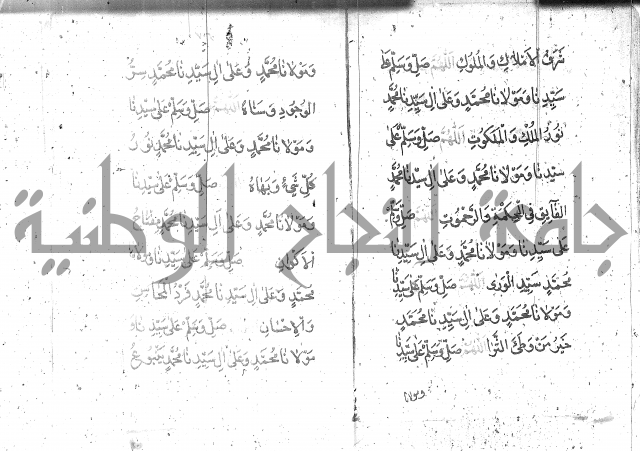 شرف الاملاك والملوك اللهم صل وسلم على
سيدنا ومولانا محمد وعلى ال سيدنا محمد
نور الملك والملكوت اللهم صل وسلم على
سيدنا ومولانا محمد وعلى ال سيدنا محمد
الفايق في الحكمة والرحموت صل وسلم
على سيدنا ومولانا محمد وعلى ال سيدنا
محمد سيد الورى اللهم صل وسلم على سيدنا
ومولانا محمد وعلى ال سيدنا محمد
خير من وطئ الثرا اللهم صل وسلم على سيدنا
ومولانا
ومولانا محمد وعلى ال سيدنا محمد سر
الوجود وسناه اللهم صل وسلم على سيدنا
ومولانا محمد وعلى ال سيدنا محمد نور
كل شيء وبهاه صل وسلم على سيدنا
ومولانا محمد وعلى ال سيدنا محمد
الاكوان صل وسلم على سيدنا ومولانا
محمد وعلى ال سيدنا محمد فرد المحاسن
والاحسان صل وسلم على سيدنا
مولانا محمد وعلى ال سيدنا محمد مجموع
جامعة النجاح الوطنية